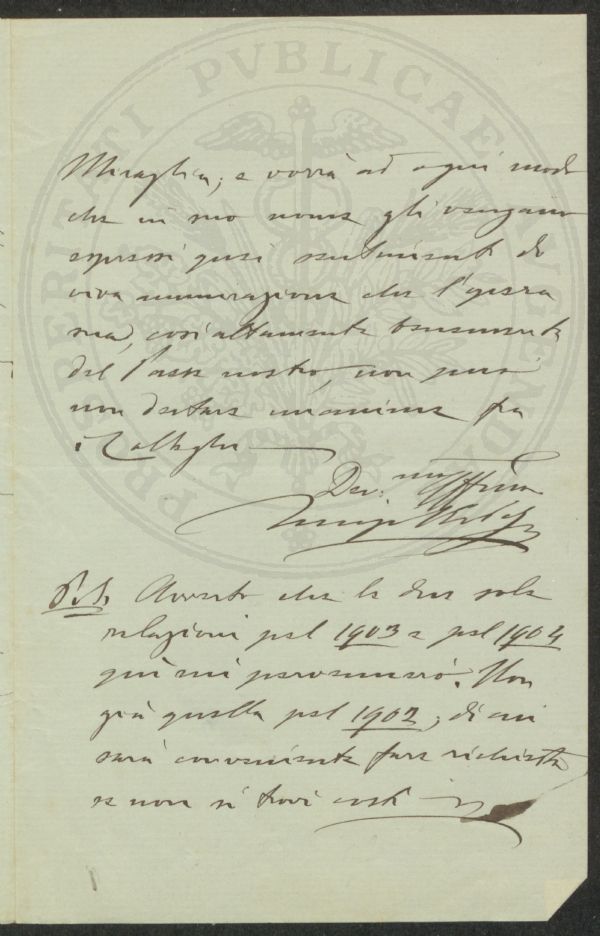 PROSPERITATI PVBLICAE AVGENDAE
Miraglia; e vorrà ad ogni modo
che in mio nome gli vengano
espressi quei sentimenti di
viva ammirazione che l'opera
sua, così altamente benemerita
del Paese nostro, non può
non destare unanime fra
i Colleghi
Dev. aff.mo
Luigi
P.S. Avverto che le due sole
relazioni pel 1903 e pel 1904
quì mi pervennero. Non
già quella pel 1902; di cui
sarà conveniente fare richiesta
se non si trovi costì